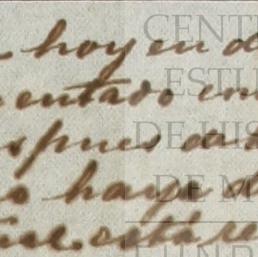 hoy en d
entado en
spues de
o haya d
está re
CENT
ESTU
DE HIS
DE M
FUND